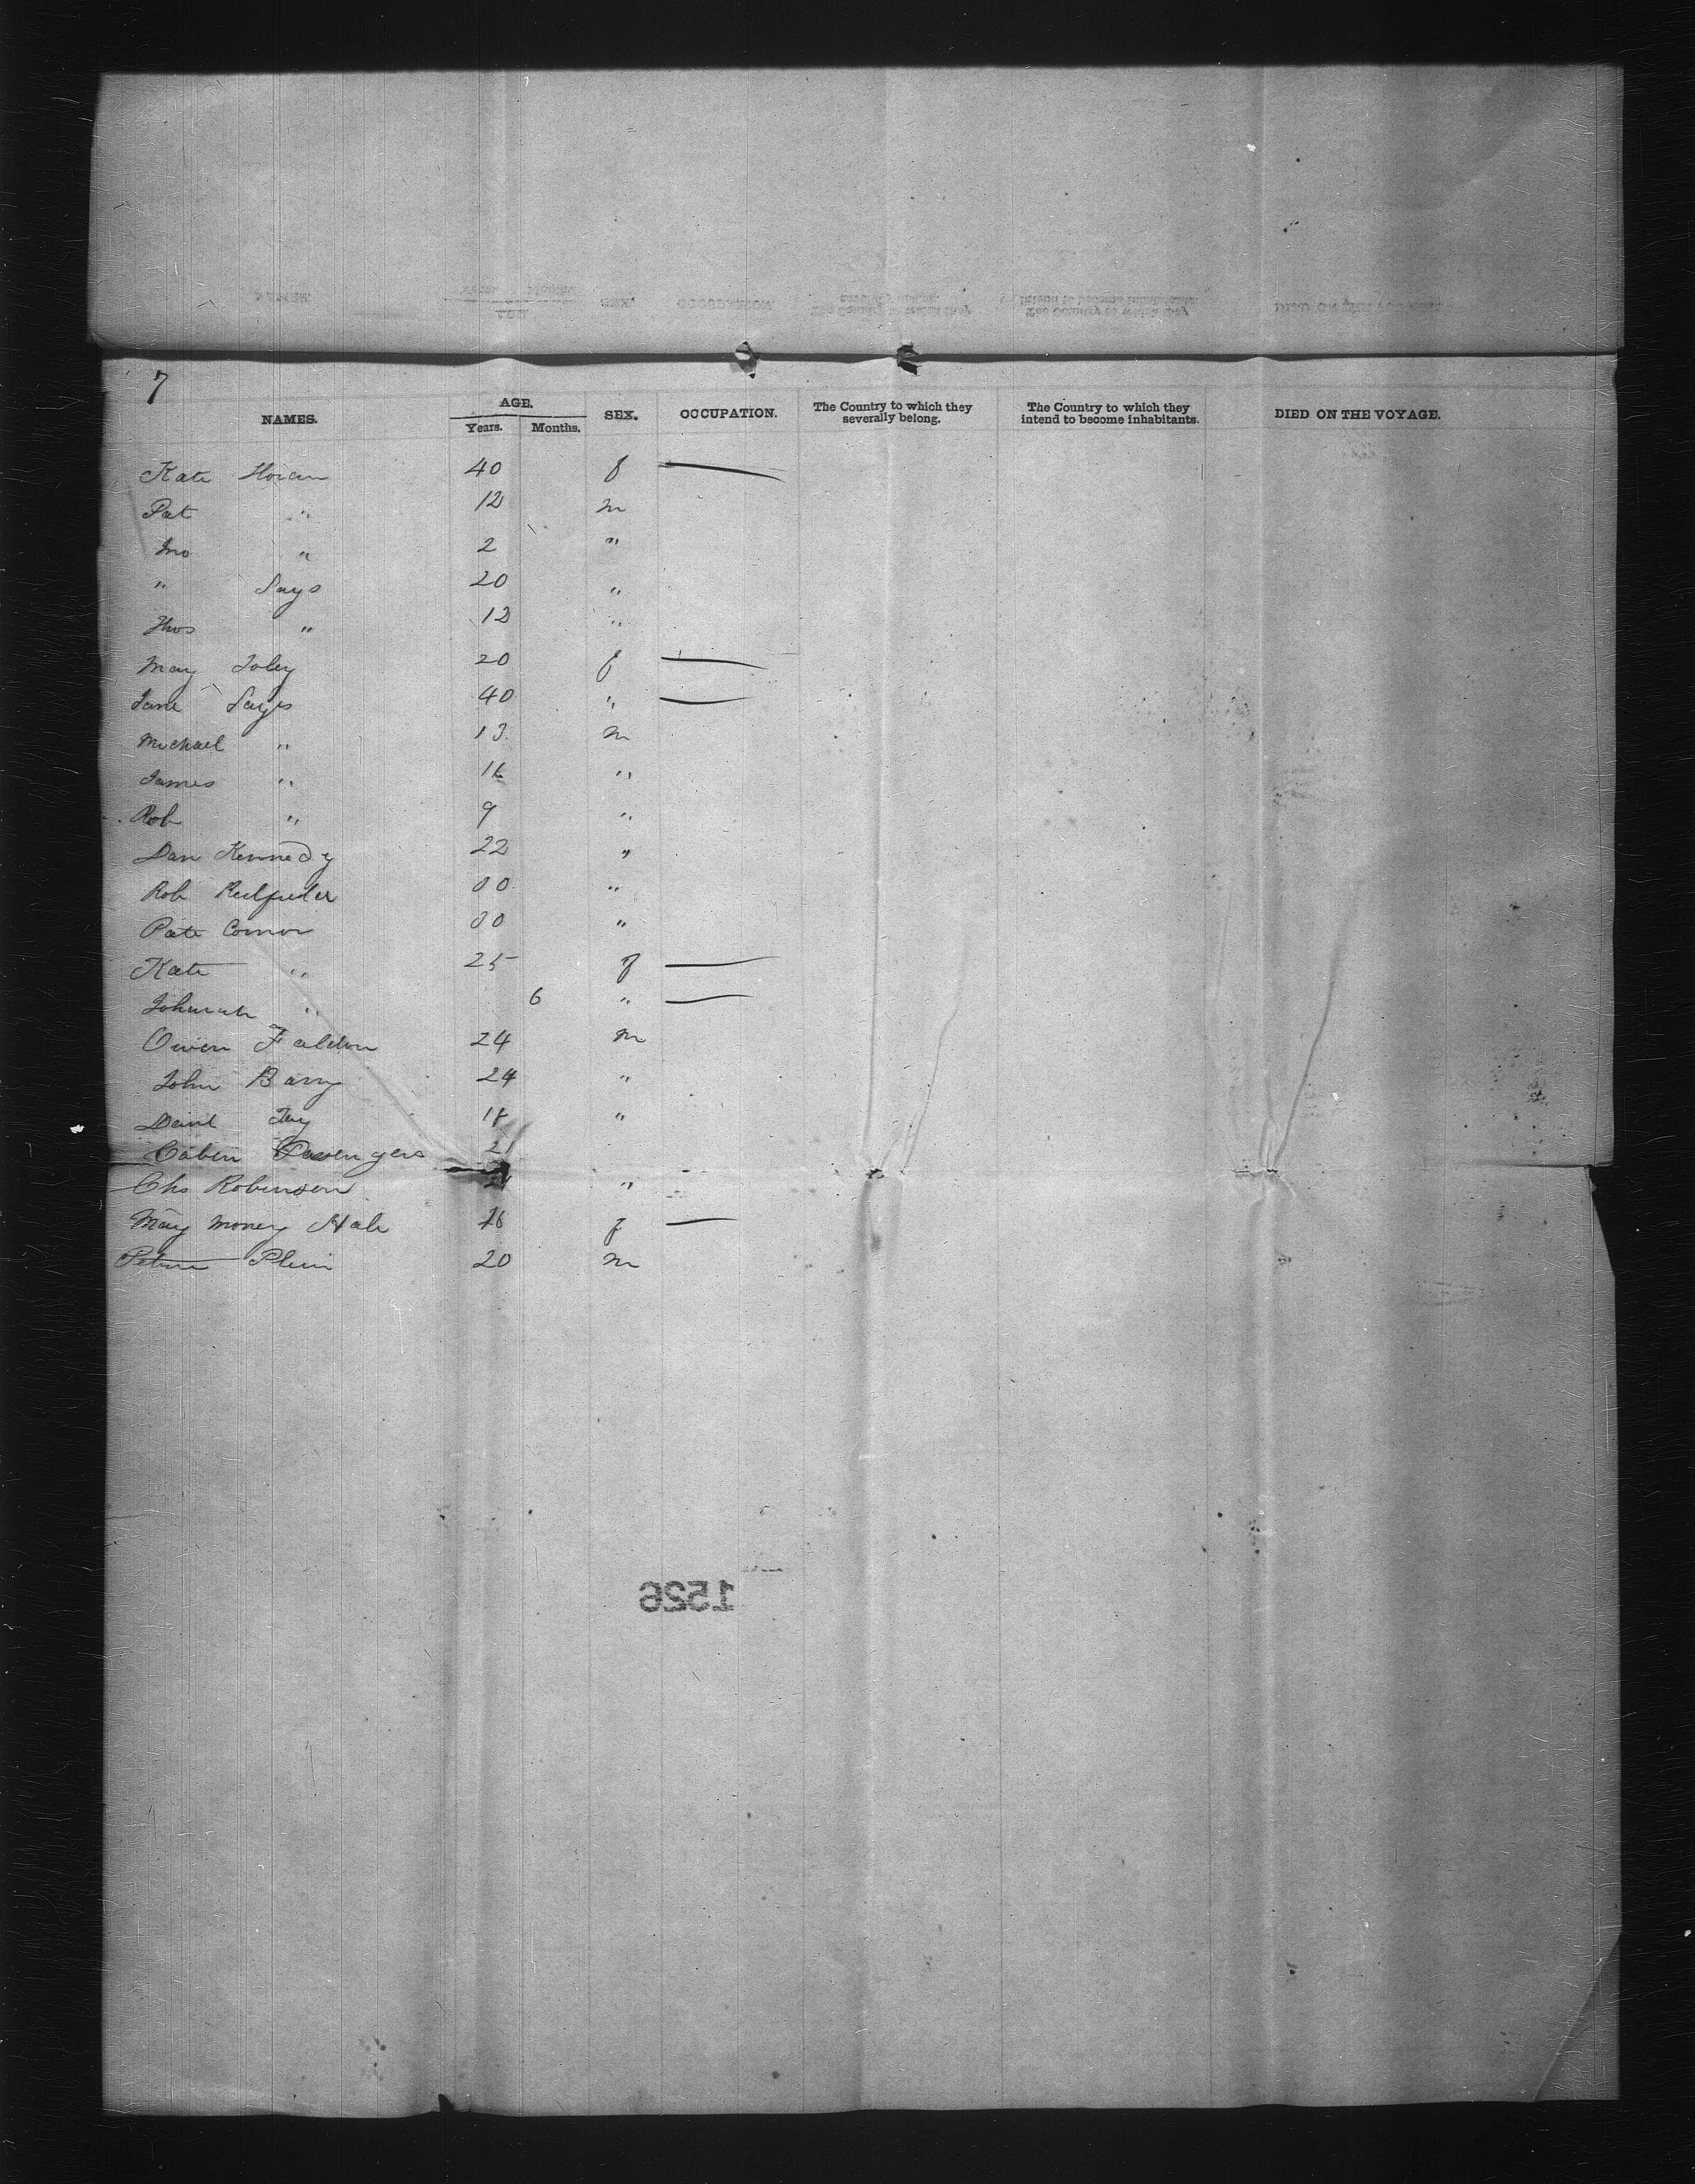 7
NAMES. AGE. Years. Months. SEX. OCCUPATION. The Country to which they severally belong. The Country to which they intend to become inhabitants. DIED ON THE VOYAGE.
Kate Horan 40 f
Pat " 12 m
Jno " 2 "
" Says 20 "
Thos " 12 "
May Foley 20 f
Jane Says 40 "
Michael " 13 m
James " "
Rob " 9 "
Dan Kennedy 22 "
Rob "
Pate Connor 30 "
Kate " 25 f
Johanah " 6 "
Owen Faldon 24 m
John Barry 24 "
David "
Cabin Passengers 21
Chs Robinson "
May Money Hale f
Plein 20 m
1526